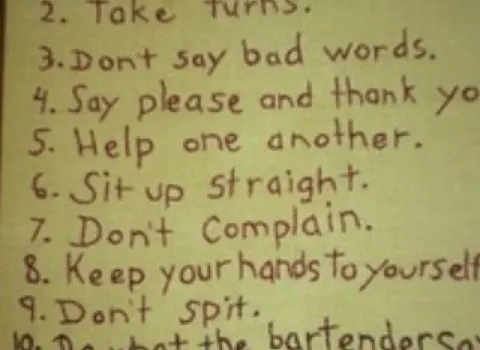 2. Take turns.
3. Dont say bad words.
4. Say please and thank yo
5. Help one another.
6. Sit up straight.
7. Don't Complain.
8. Keep your hands to yourself
9. Don't spit.
10. Do what the bartender say